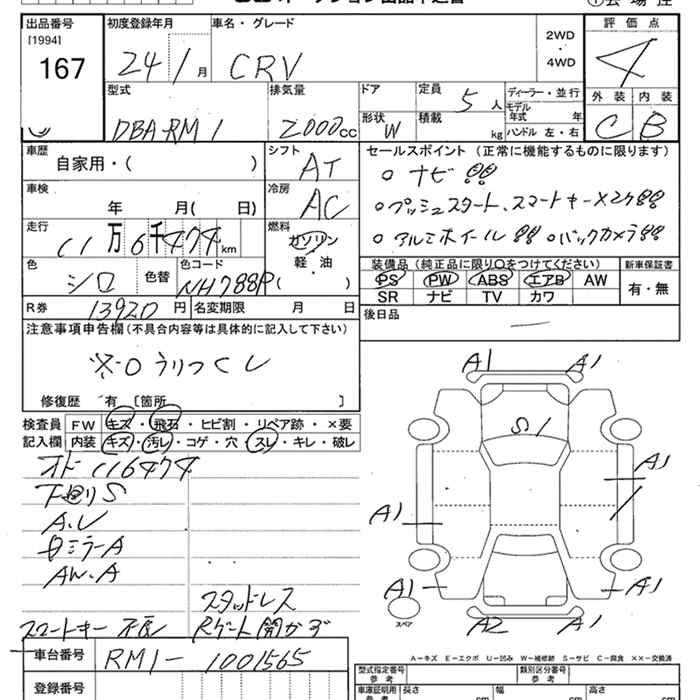 出品番号 [1994] 167
初度登録年月 24 / 1 月
車名・グレード CRV
2WD ・ 4WD
評価点 4
外装 C 内装 B
型式 DBA-RM1
排気量 2000cc
ドア 形状 W
定員 5人
積載 kg
ディーラー・並行
モデル年式 年
ハンドル 左・右
車歴 自家用・( )
シフト AT
セールスポイント (正常に機能するものに限ります)
○ ナビ!!
○プッシュスタート、スマートキー×2ケ!!
○ アルミホイール!! ○バックカメラ!!
車検 年 月( 日)
冷房 AC
走行 11万6千474km
燃料 ガソリン 軽・油 ( )
色 シロ 色替 色コード NH788P
装備品 (純正品に限り○をつけてください)
PS PW ABS エアB AW
SR ナビ TV カワ
新車保証書 有・無
R券 13920円 名変期限 月 日
後日品 —
注意事項申告欄 (不具合内容等は具体的に記入して下さい)
※○うりつくし
修復歴 有 [箇所 ]
検査員記入欄
FW キズ・飛石・ヒビ割・リペア跡・×要
内装 キズ・汚レ・コゲ・穴・スレ・キレ・破レ
オド 116474
下廻りS
A.U
AW.A
スタッドレス
スマートキー 不良 Rゲート開かず
A1 A1
S1
A1
A1
A1 A1
スペア A2 A1
A-キズ E-エクボ U-凹み W-補修跡 S-サビ C-腐食 ××-交換済
車台番号 RM1-1001565
登録番号
型式指定番号 参考
類別区分番号 参考
車庫証明用 参考 長さ cm 幅 cm 高さ cm